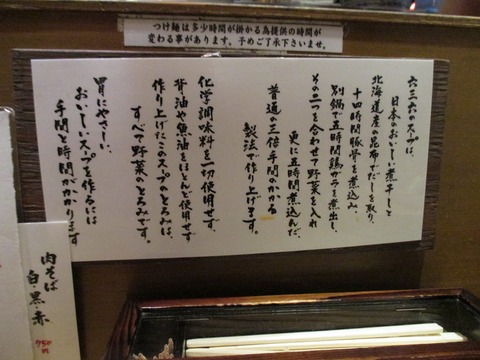 つけ麺は多少時間が掛かる為提供の時間が
変わる事があります。予めご了承下さいませ。
六三六のスープは、
日本のおいしい煮干しと
北海道産の昆布でだしを取り、
十四時間豚骨を煮込み、
別鍋で五時間鶏ガラを煮出し、
その二つを合わせて野菜を入れ
更に五時間煮込んだ、
普通の三倍手間のかかる
製法で作り上げます。
化学調味料を一切使用せず、
背油や魚油をほとんど使用せず
作り上げたこのスープのとろみは、
すべて野菜のとろみです。
胃にやさしい、
おいしいスープを作るには
手間と時間がかかります
肉そば
白・黒・赤
750円